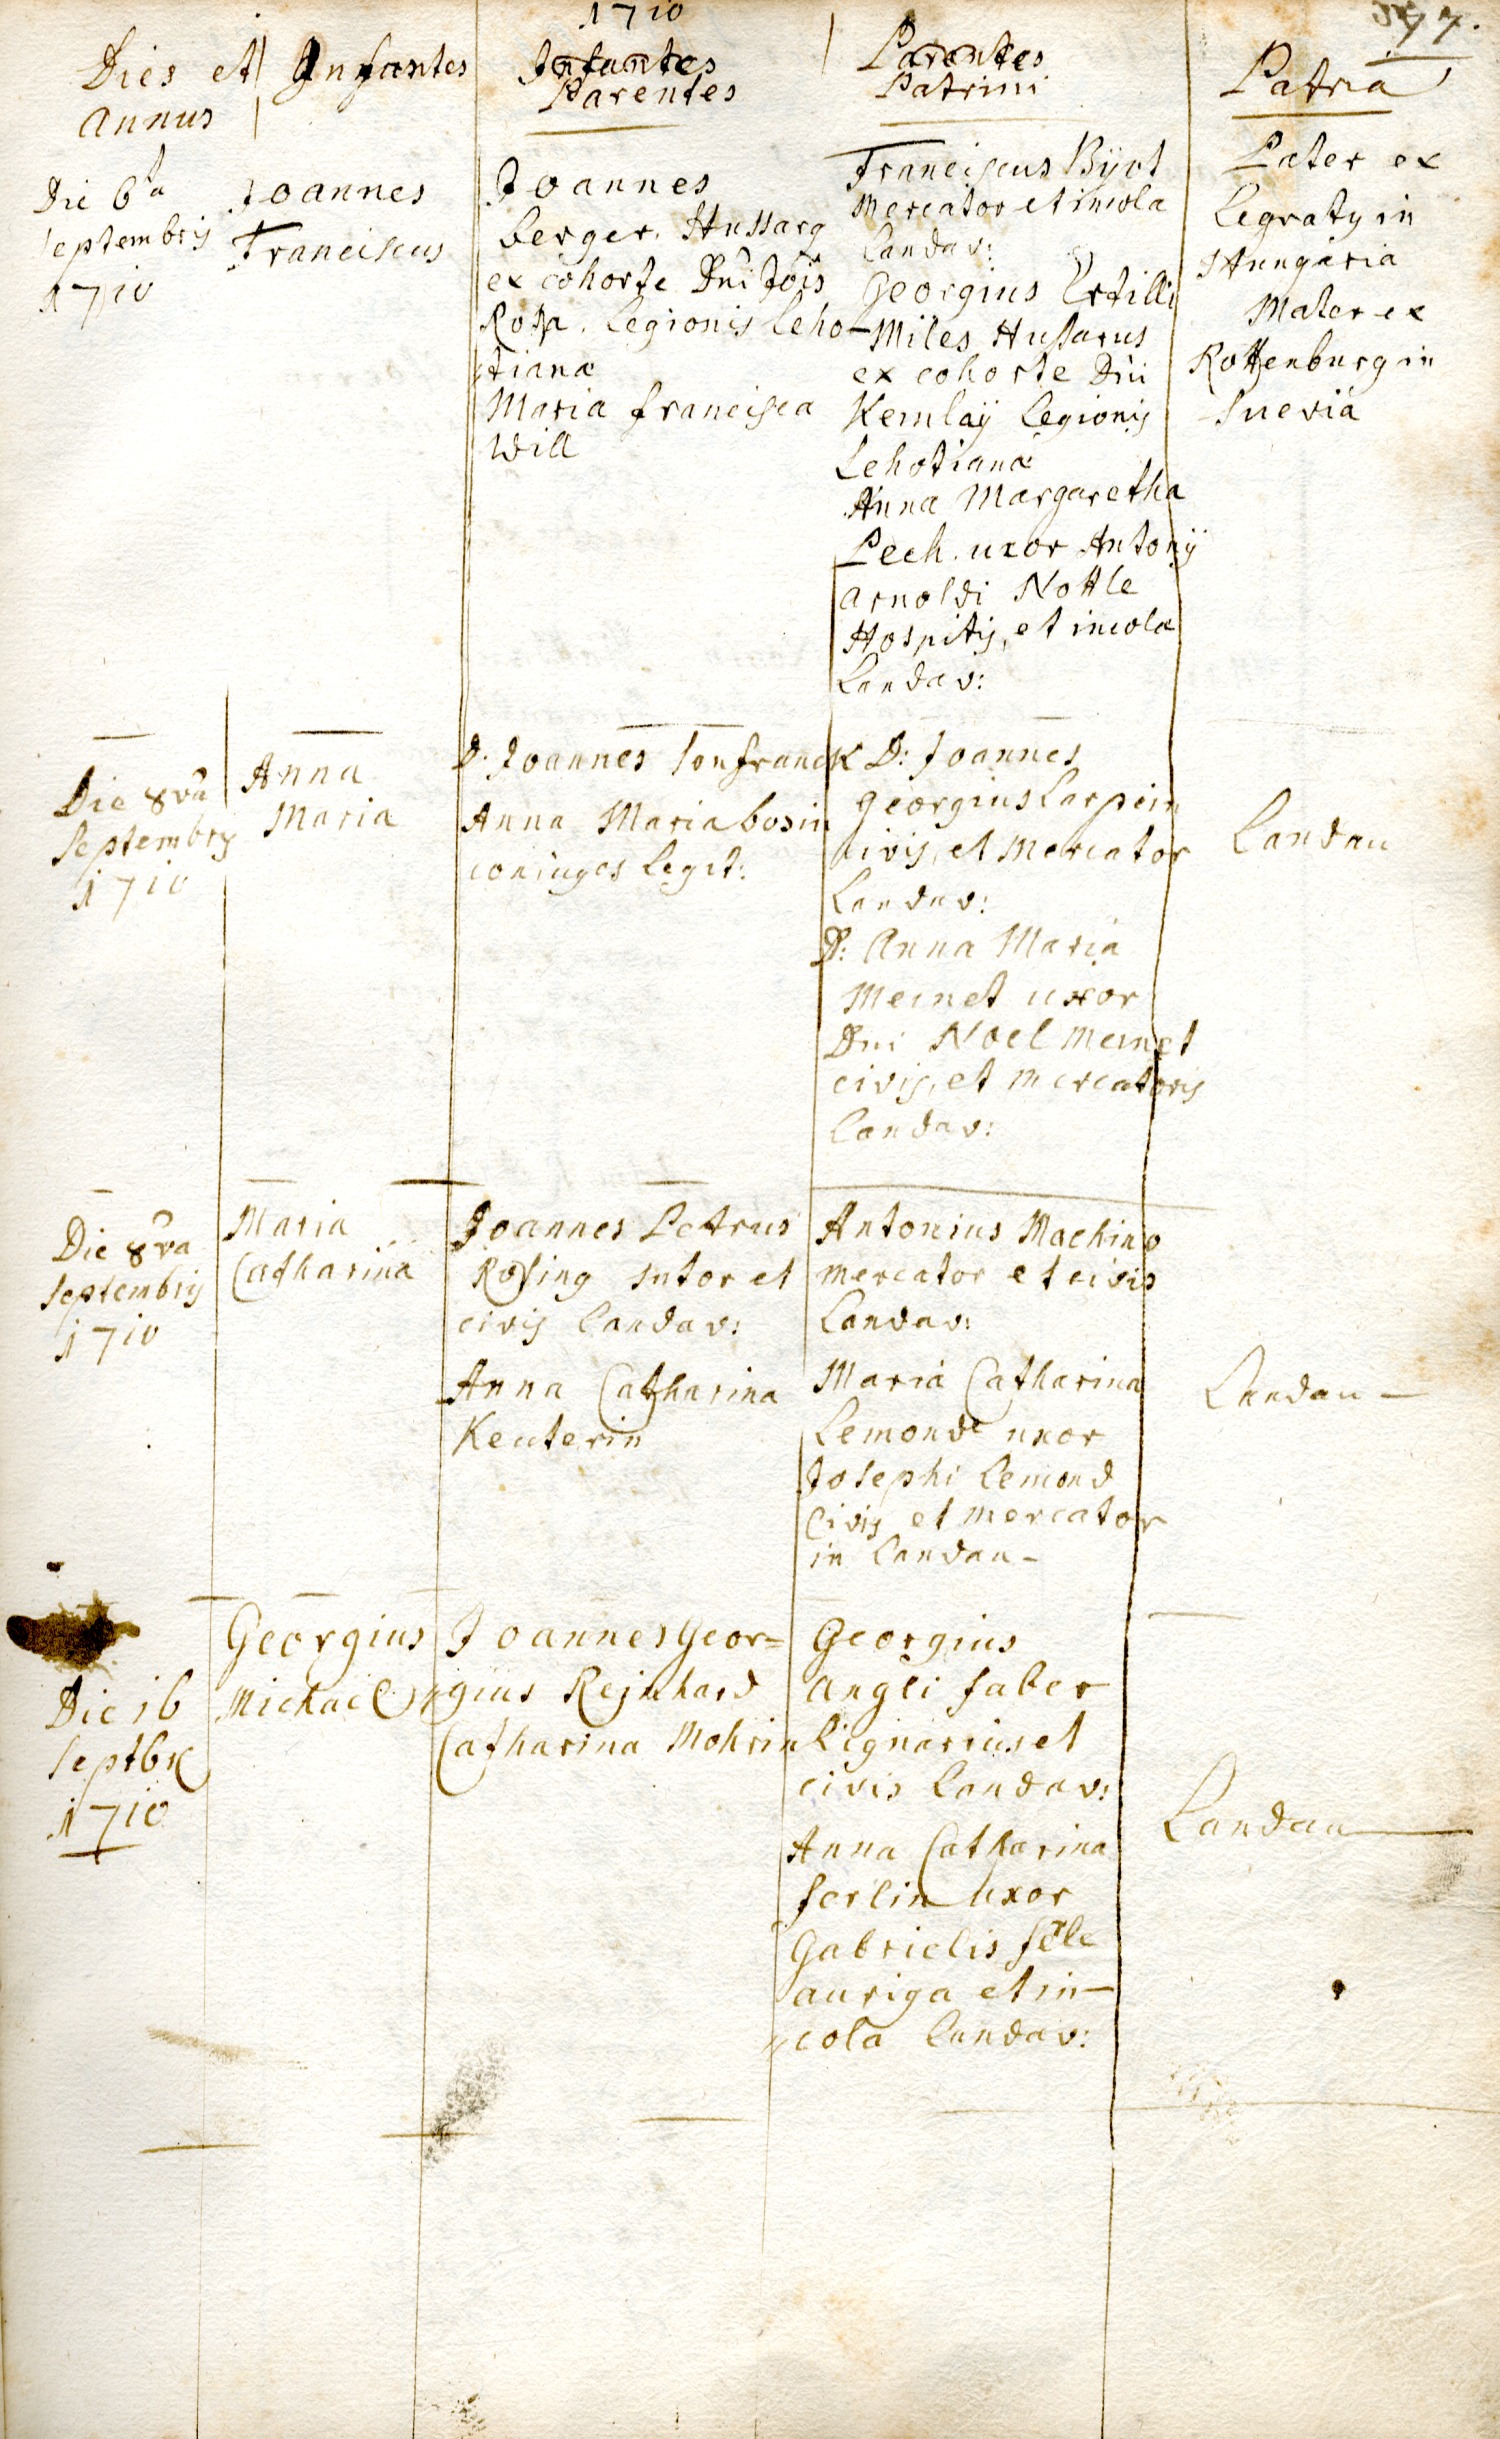 1710
Dies et
annus
Infantes
Infantes
Parentes
Parentes
Patrini
Patria
Die 6ta
septembris
1710
Joannes
Franciscus
Joannes
berger. Hussarg
ex cohorte Dni Jois
Legionis Leho-
tiana
Maria francisca
Will
Franciscus Byot
Mercator et incola
Landav:
Georgius Ertilli
Miles Hussarus
ex cohorte Dni
Kemlaÿ Legionis
Lehotiana
Anna Margaretha
Pech. uxor Antonÿ
arnoldi Nottle
Hospitis, et incola
Landav:
Pater ex
Legraty in
Hungaria
Mater ex
Rottenburg in
Suevia
Die 8va
septembris
1710
Anna
Maria
D: Joannes Sonfranck
Anna Maria bosin
coniuges legit:
D: Joannes
georgius Larpein
civis, et Mercator
Landav:
D: Anna Maria
Meinet uxor
Dni Noel meinet
civis, et mercatoris
Landav:
Landau
Die 8va
septembris
1710
Maria
Catharina
Joannes Petrus
Rosing sutor et
civis Landav:
Anna Catharina
Keuterin
Antonius Machino
mercator et civis
Landav:
Maria Catharina
Lemond uxor
Josephi Lemond
Civis et mercator
in Landau-
Landau-
Die 16
septbr
1710
Georgius
Michael
Joannes Geor=
gius Rejnhard
Catharina Mohrin
Georgius
angli faber
lignarius et
civis Landav:
Anna Catharina
ferlin uxor
Gabrielis
auriga et in-
cola Landav:
Landau